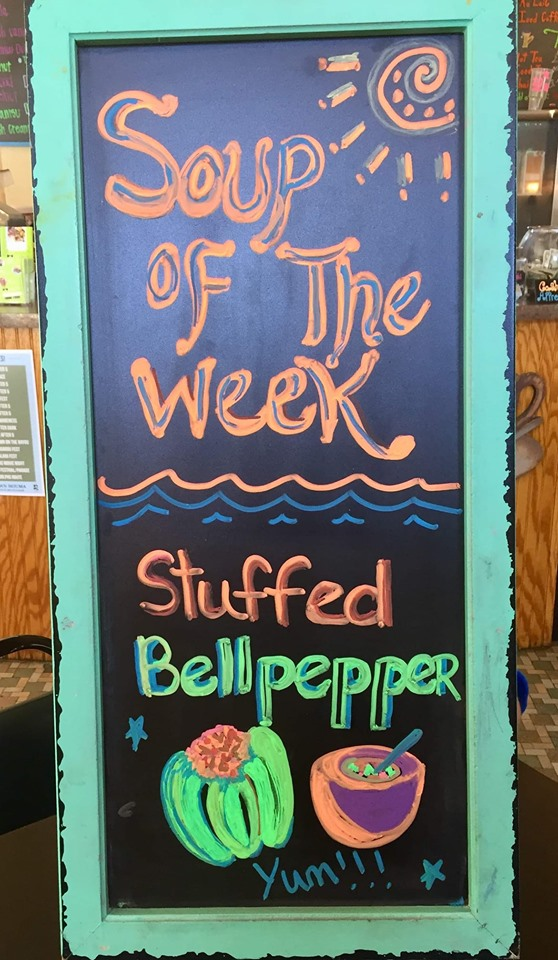 Soup
of The
Week
Stuffed
Bellpepper
Yum!!!